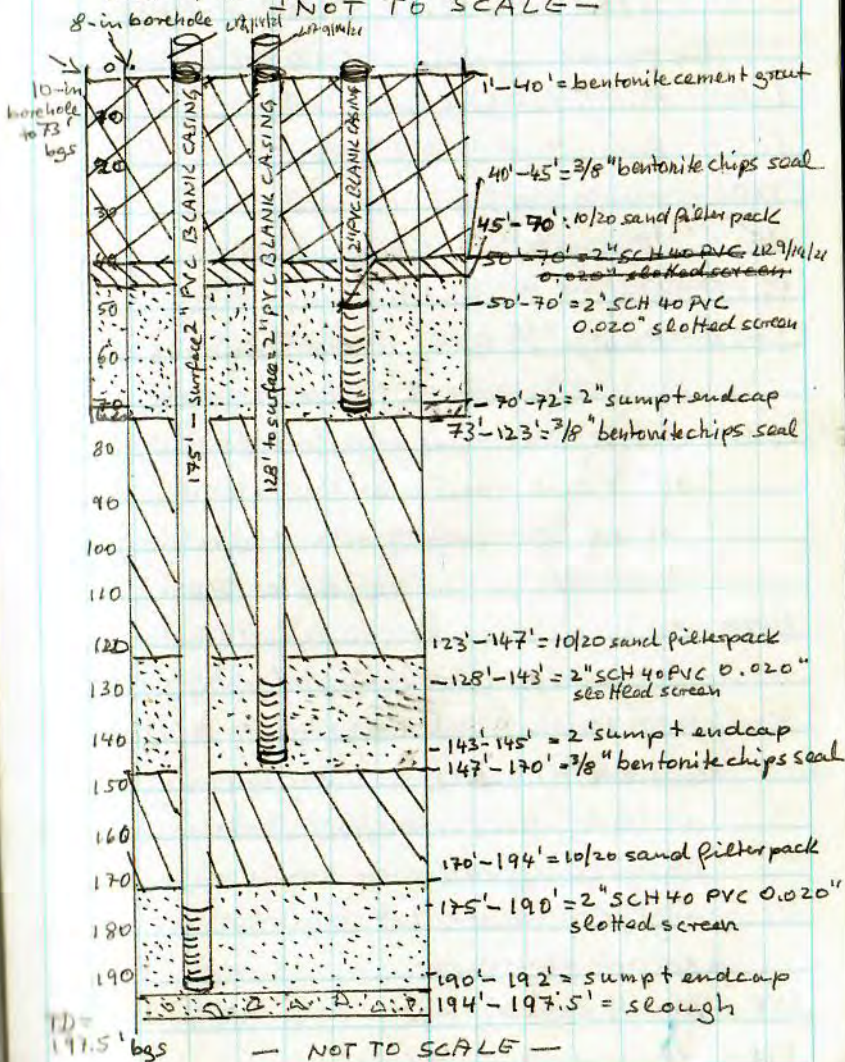 — NOT TO SCALE —
8-in borehole
10-in
borehole
to 73'
bgs
0
10
20
30
40
50
60
70
80
90
100
110
120
130
140
150
160
170
180
190
175' - surface 2" PVC BLANK CASING
128' to surface = 2" PVC BLANK CASING
2" PVC BLANK CASING
1'-40' = bentonite cement grout
40'-45' = 3/8" bentonite chips seal
45'-70': 10/20 sand filter pack
50'-70' = 2" SCH 40 PVC 9/14/21
0.020" slotted screen
-50'-70' = 2" SCH 40 PVC
0.020" slotted screen
-70'-72' = 2" sump + endcap
73'-123' = 3/8" bentonite chips seal
123'-147' = 10/20 sand filterpack
-128'-143' = 2" SCH 40 PVC 0.020"
slotted screen
-143'-145' = 2' sump + endcap
-147'-170' = 3/8" bentonite chips seal
170'-194' = 10/20 sand filter pack
-175'-190' = 2" SCH 40 PVC 0.020"
slotted screen
190'-192' = sump + endcap
194'-197.5' = slough
TD =
197.5' bgs
— NOT TO SCALE —